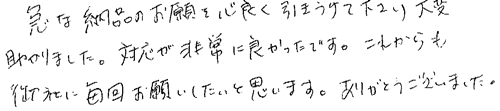 急な納品のお願を心良く引きうけて下さり大変
助かりました。対応が非常に良かったです。これからも
御社に毎回お願いしたいと思います。ありがとうございました。